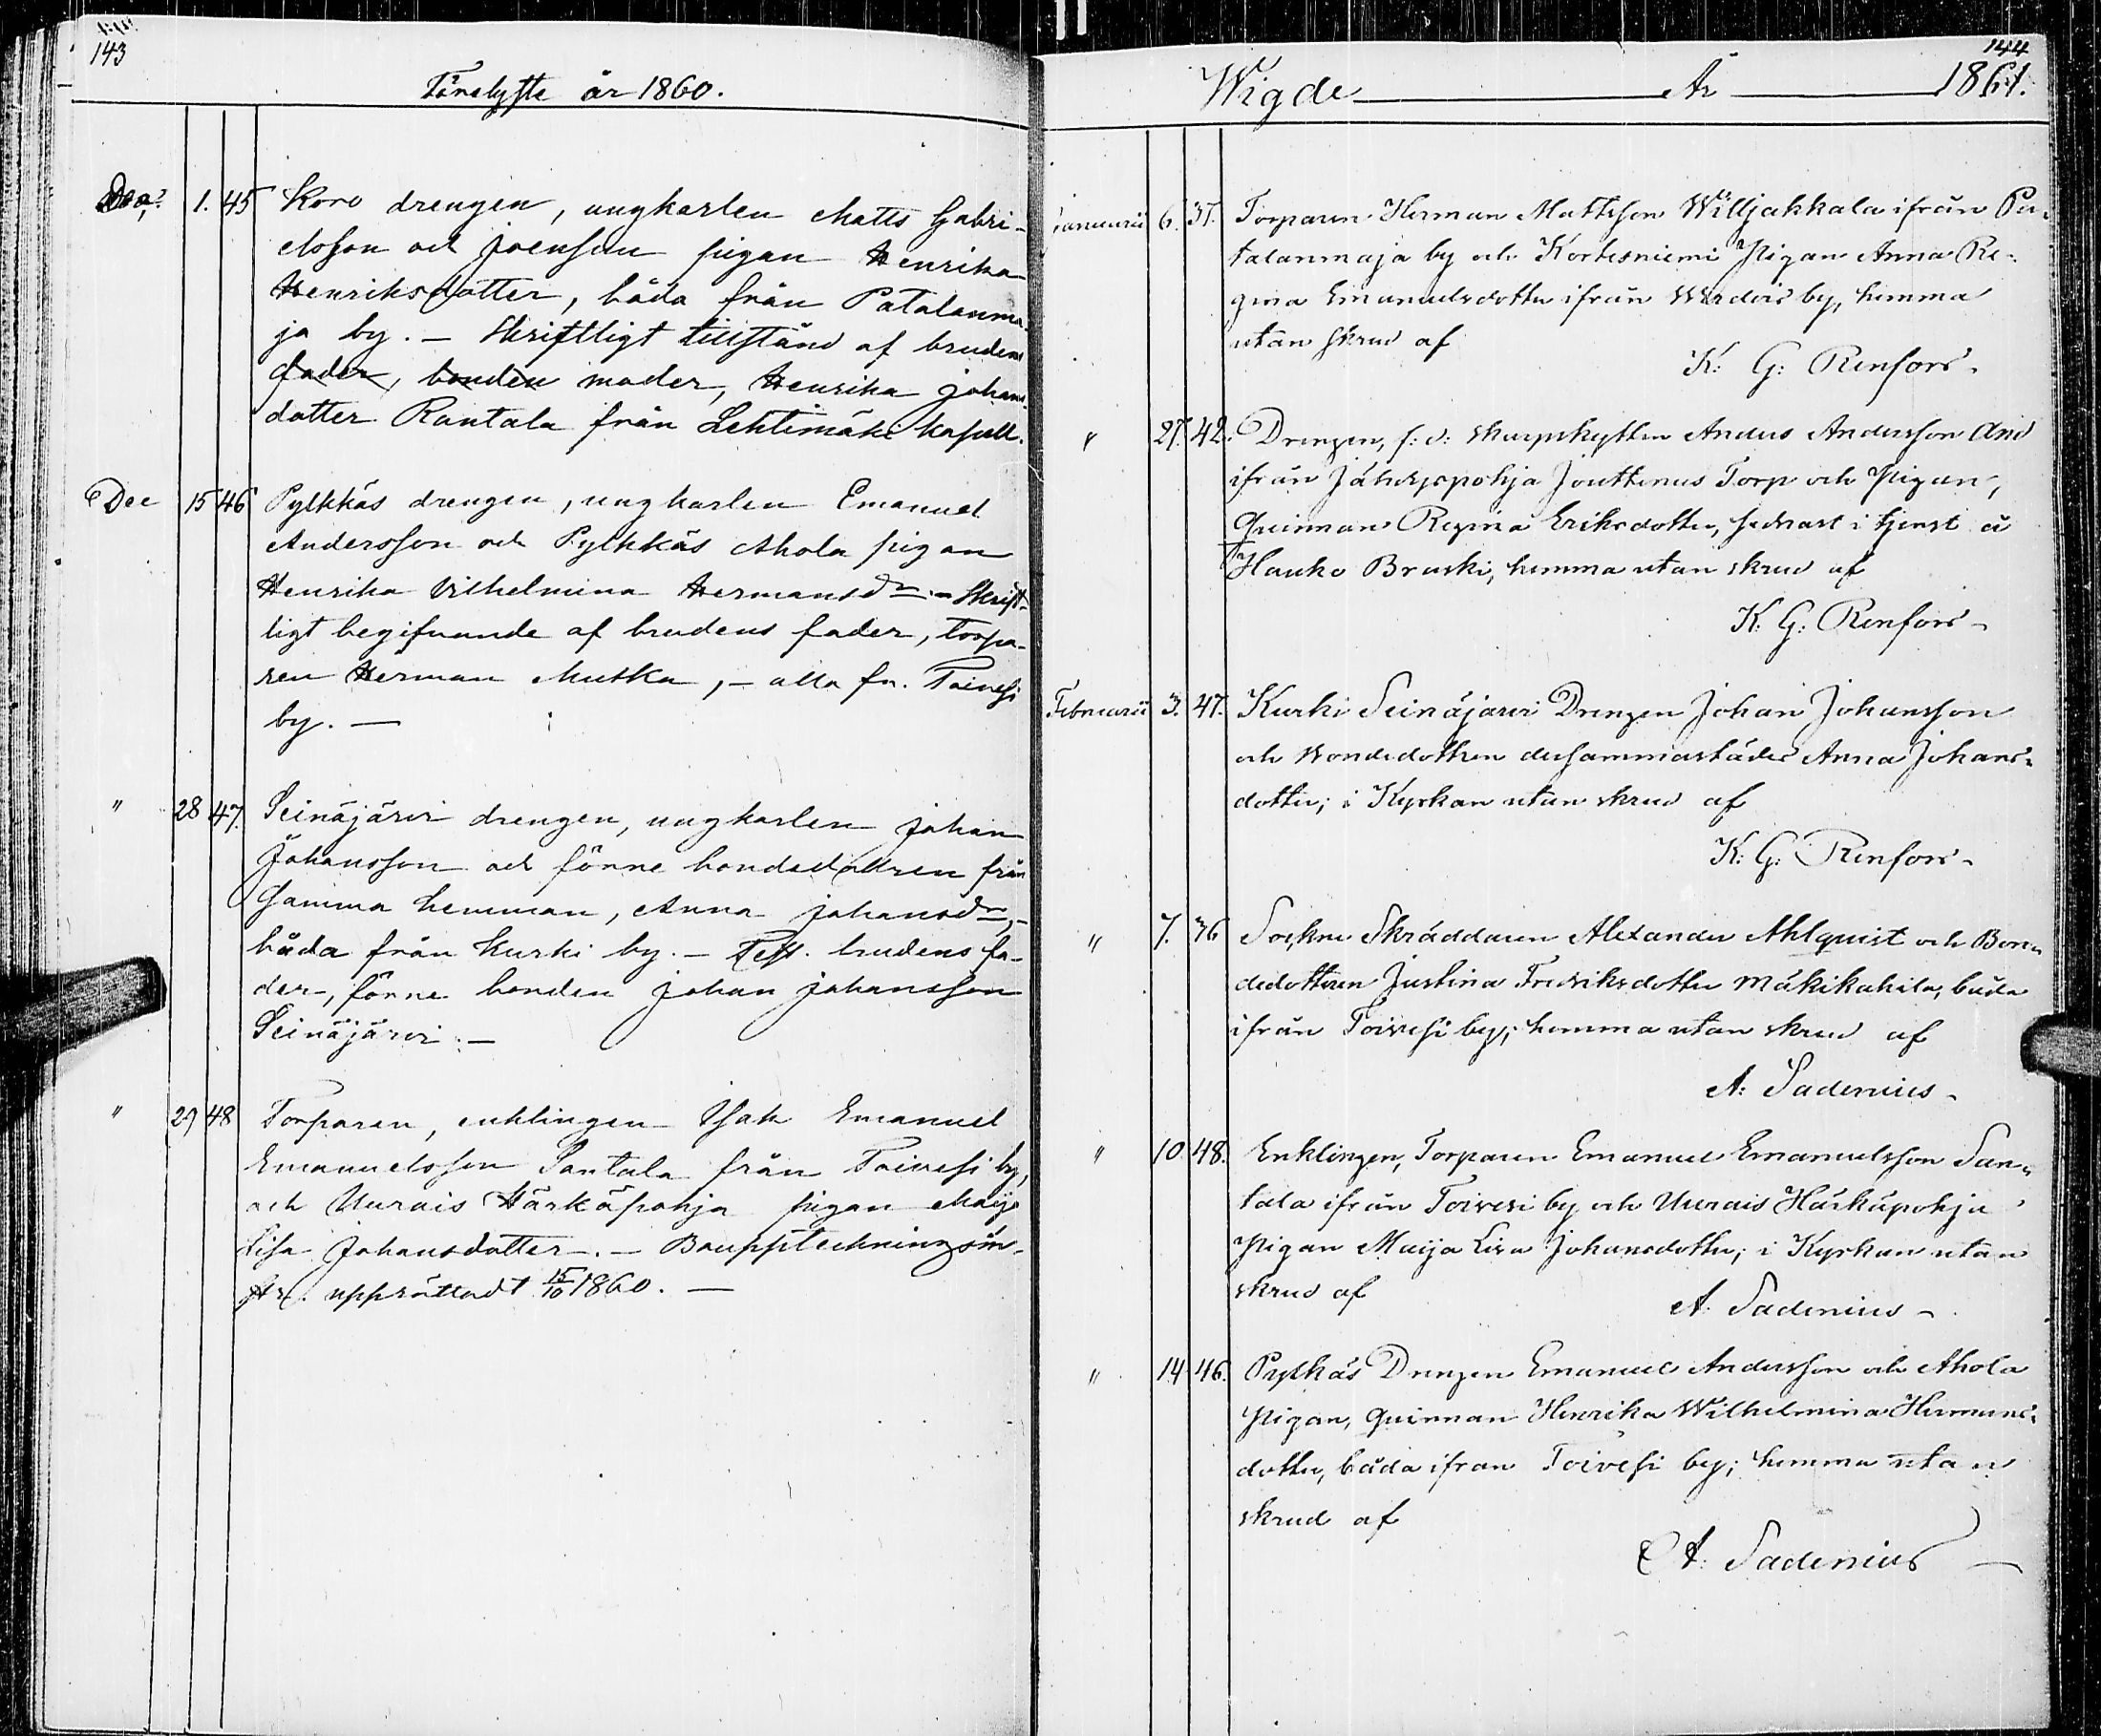 143
Förelyste år 1860.
Dec. 1. 45 Koro drengen, ungkarlen Matts Gabri-
elsson och Joensuu pigan Henrika
Henriksdotter, båda från Patalanma-
ja by. — Skriftligt tillstånd af brudens
fader, bonden moder, Henrika Johans-
dotter Rantala från Lehtimäki kapell.
Dec 15 46 Pylkkäs drengen, ungkarlen Emanuel
Andersson och Pylkkäs Ahola pigan
Henrika Vilhelmina Hermansdr. – Skrift-
ligt begifvande af brudens fader, torpa-
ren Herman Mutka, – alla fr. Toivesi
by. —
" 28 47. Seinäjärvi drengen, ungkarlen Johan
Johansson och förre bondedottren från
samma hemman, Anna Johansdr, –
båda från Kurki by. – Test. brudens fa-
der, förre bonden Johan Johansson
Seinäjärvi. —
" 29 48 Torparen, enklingen Isak Emanuel
Emanuelsson Santala från Toivesi by,
och Uurais Härkäpohja pigan Maija
Lisa Johansdotter. – Bouppteckningsin-
str. upprättadt 15/10 1860. —
144
Wigde År 1861.
Januarii 6. 37. Torparen Herman Mattsson Willjakkala ifrån Pa-
talanmaja by och Kortesniemi Pigan Anna Re-
gina Emanuelsdotter ifrån Wirdois by, hemma
utan skrud af
K. G. Renfors.
" 27. 42. Drengen, f. d. skarpskytten Anders Andersson And
ifrån Jäherjspohja Jouttenus Torp och Pigan,
Qvinnan Regina Eriksdotter, sednast i tjenst å
Hauko Bruski, hemma utan skrud af
K. G. Renfors
Februarii 3. 47. Kurki Seinäjärvi Drengen Johan Johansson
och Bondedottren dersammastädes Anna Johans-
dotter; i Kyrkan utan skrud af
K. G. Renfors.
" 7. 36 Sockne Skräddaren Alexander Ahlqvist och Bon-
dedottren Justina Fredriksdotter Mäkikahila, båda
ifrån Toivesi by; hemma utan skrud af
A. Sadenius.
" 10. 48. Enklingen, Torparen Emanuel Emanuelsson San-
tala ifrån Toivesi by och Uurais Härkäpohja
Pigan Maija Lisa Johansdotter; i Kyrkan utan
skrud af
A. Sadenius
" 14. 46. Pylkäs Drengen Emanuel Andersson och Ahola
Pigan, Qvinnan Henrika Wilhelmina Hermans-
dotter, båda ifrån Toivesi by; hemma utan
skrud af
A. Sadenius